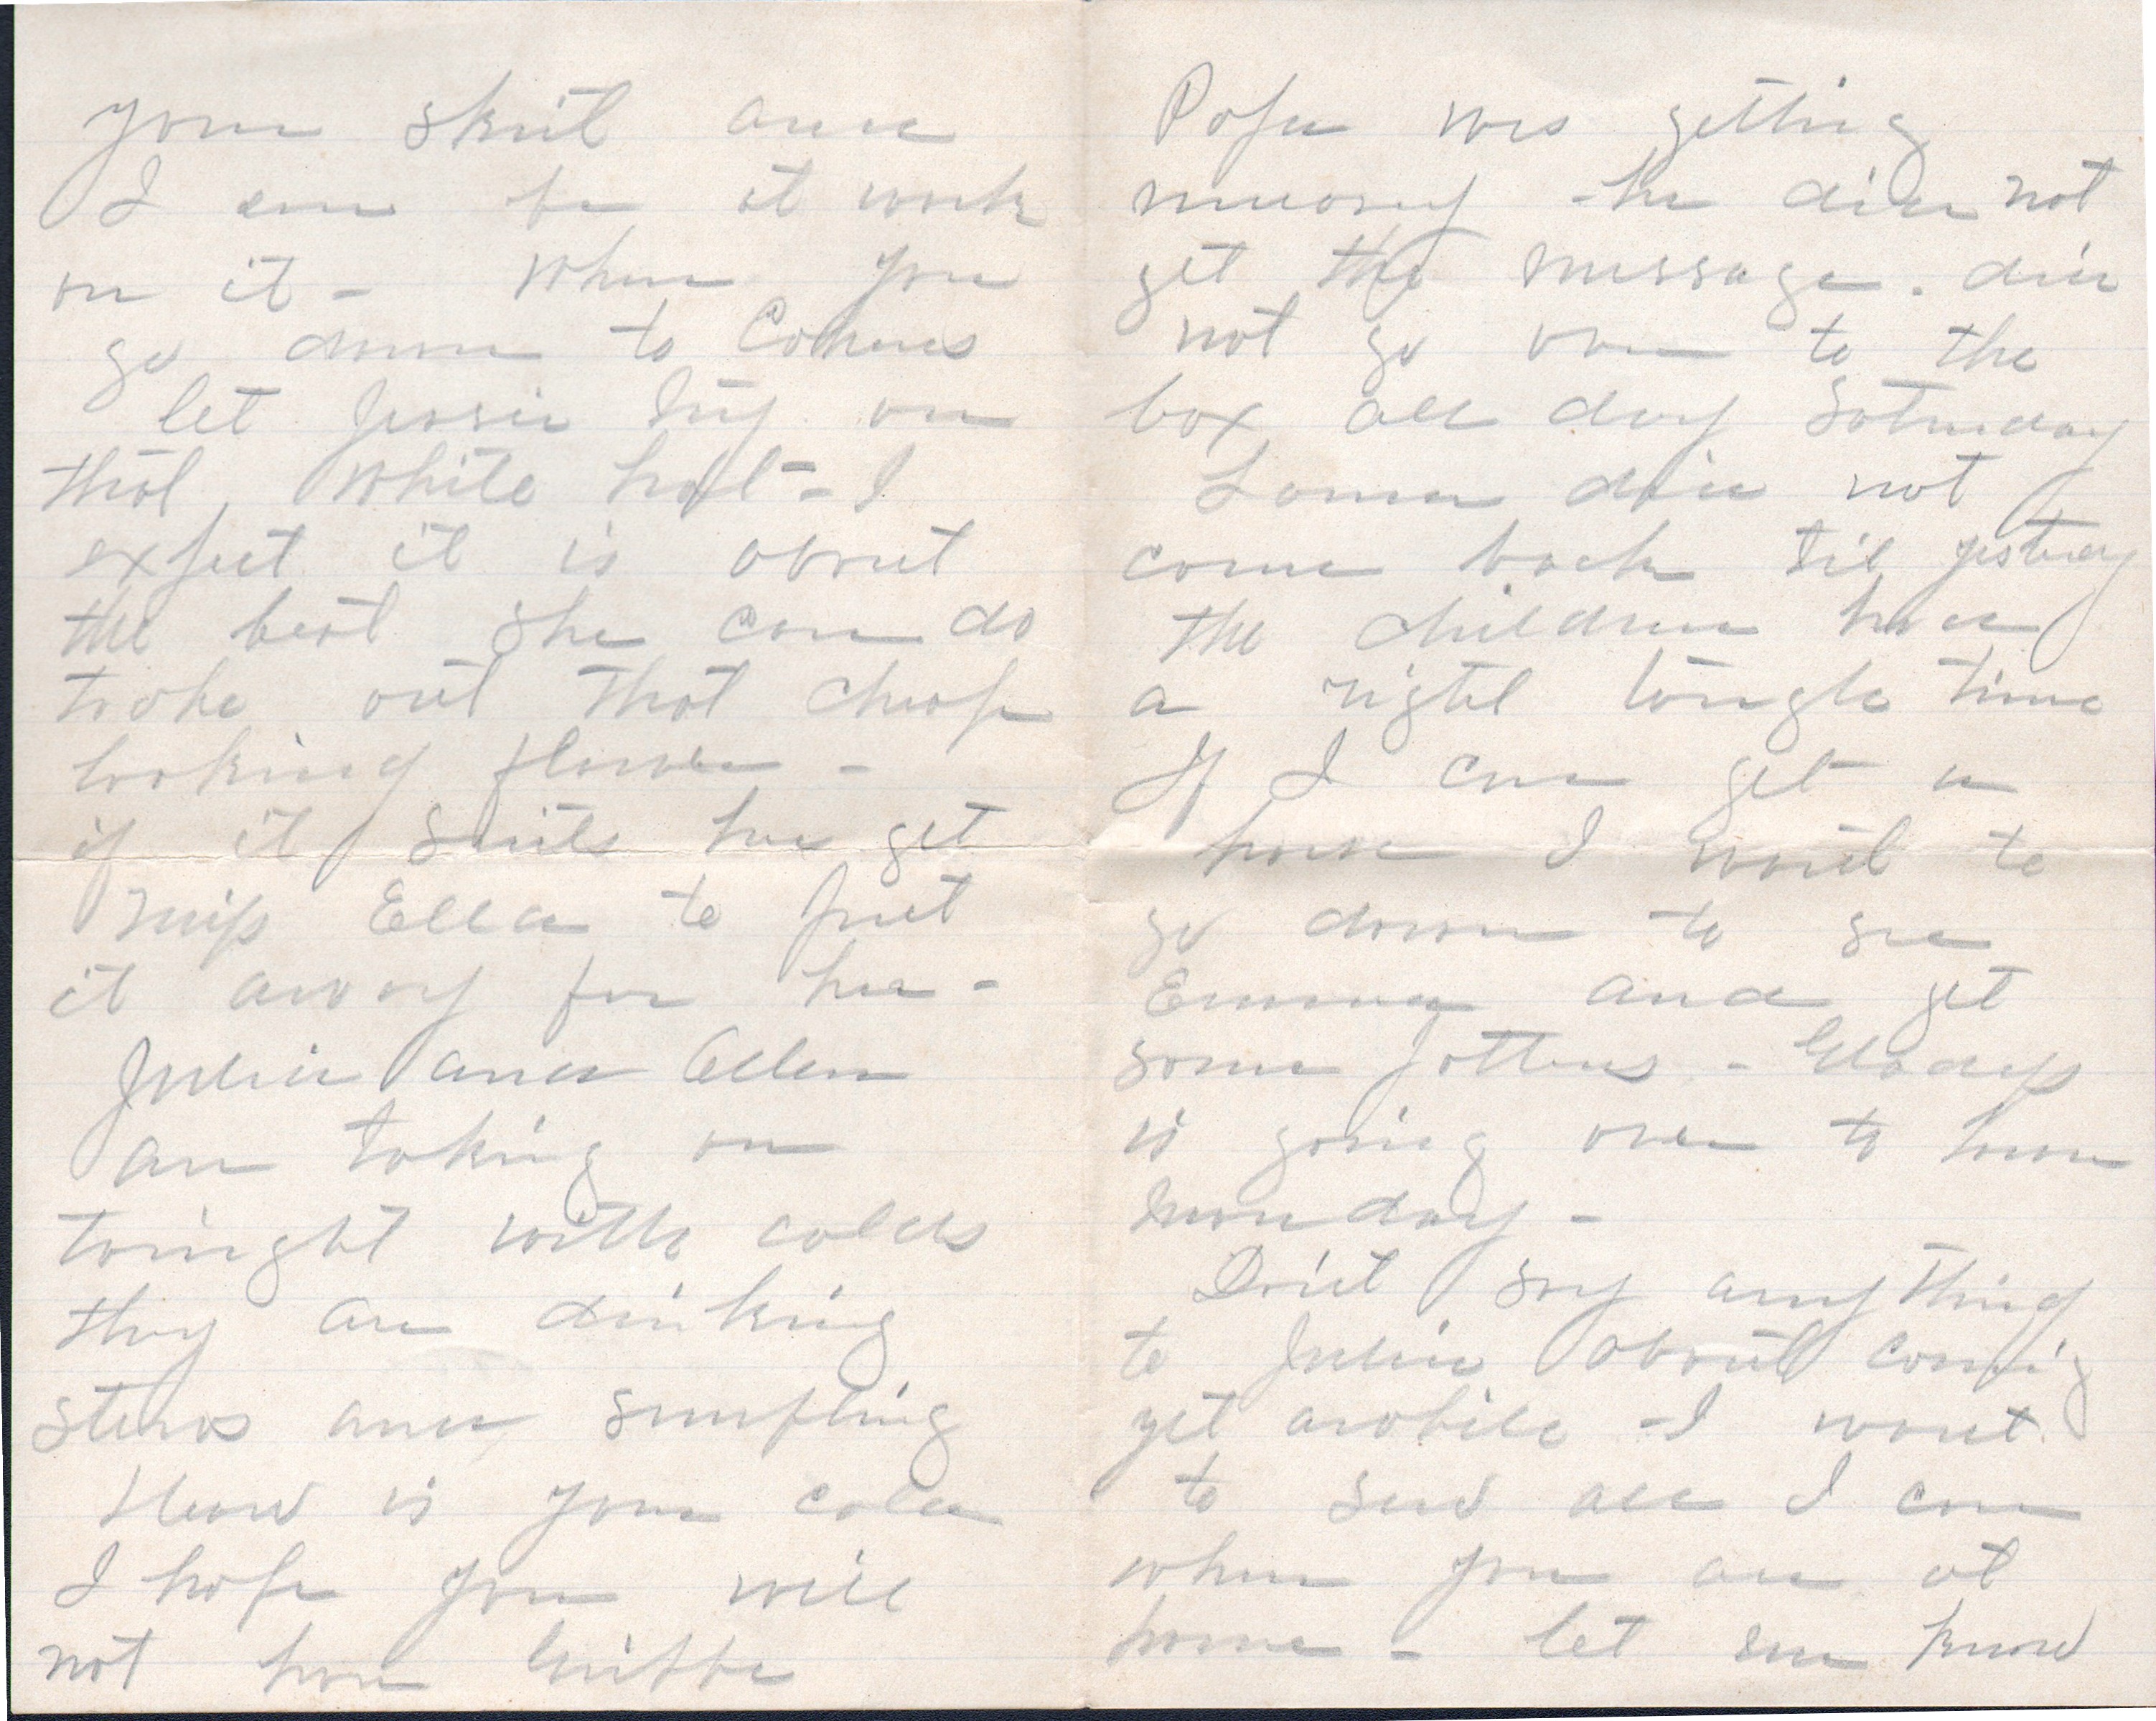 your skirt and
I can be at work
on it - When you
go down to
let Jessie try on
that white hat - I
expect it is about
the best she can do
take out that cheap
looking flower -
if it suits her get
Miss Ella to put
it away for her -
Julia and Allen
are taking on
tonight with colds
they are drinking
stews and snuffling
How is your cold
I hope you will
not have Grippe
Papa was getting
uneasy - he did not
get the message. did
not go over to the
box all day Saturday
did not
come back til yesterday
the children had
a right tough time
If I can get a
horse I want to
go down to see
Emma and get
some - Gladys
is going over to
Monday -
Don't say anything
to Julia about coming
yet awhile - I want
to sew all I can
when you are at
home - let me know